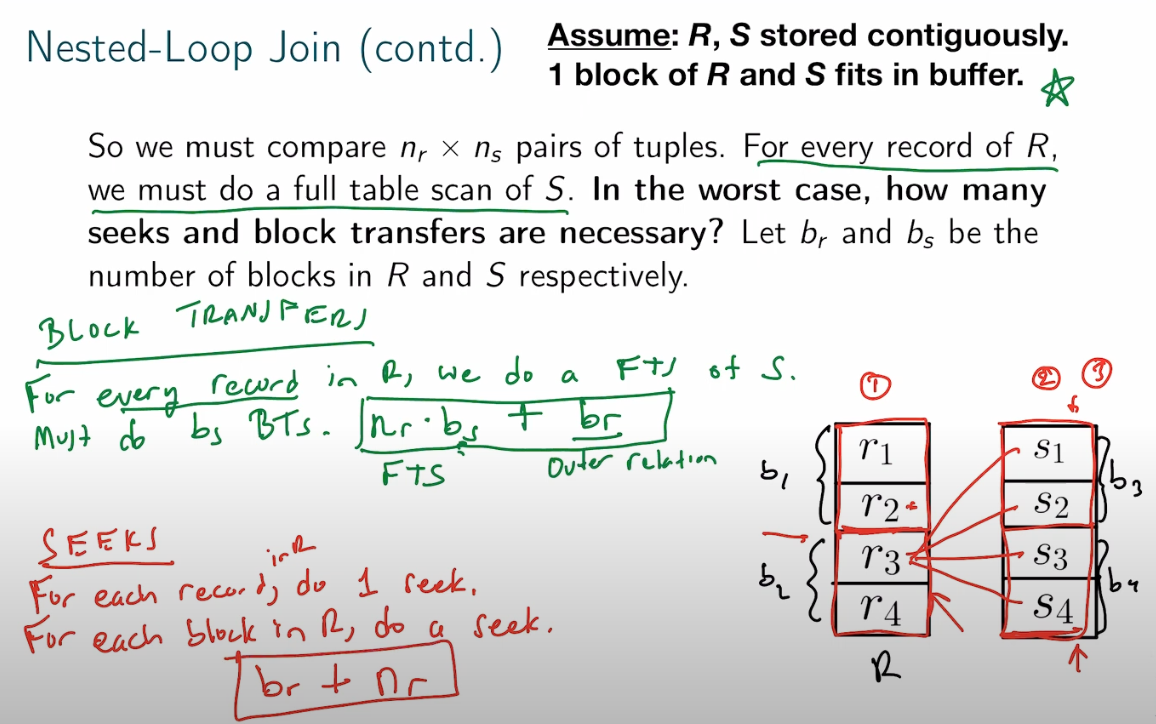 Nested-Loop Join (contd.)
Assume: R, S stored contiguously.
1 block of R and S fits in buffer.
So we must compare nᵣ × nₛ pairs of tuples. For every record of R,
we must do a full table scan of S. In the worst case, how many
seeks and block transfers are necessary? Let bᵣ and bₛ be the
number of blocks in R and S respectively.
BLOCK TRANSFERS
For every record in R, we do a FTS of S.
Must do bs BTs. nr · bs + br
FTS Outer relation
SEEKS
For each record, in R do 1 seek.
For each block in R, do a seek.
br + nr
① ② ③
b1 r1 s1 b3
r2 s2
b2 r3 s3 b4
r4 s4
R